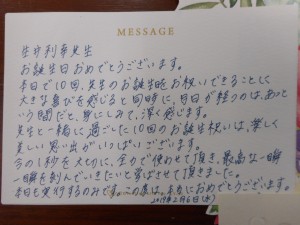 MESSAGE
先生
お誕生日おめでとうございます。
本日で10回、先生のお誕生日をお祝いできることに
大きな喜びを感じると同時に、月日が経つのは、あっと
いう間だと、身にしみて、深く感じます。
先生と一緒に過ごした10回のお誕生祝いは、楽しく
美しい思い出がいっぱいございます。
今の1秒を大切に、全力で使わせて頂き、最高な一瞬
一瞬を刻んでいきたいと学ばさせて頂きました。
本日も実行するのみです。この度は、本当におめでとうございます。
2019年2月6日(水)